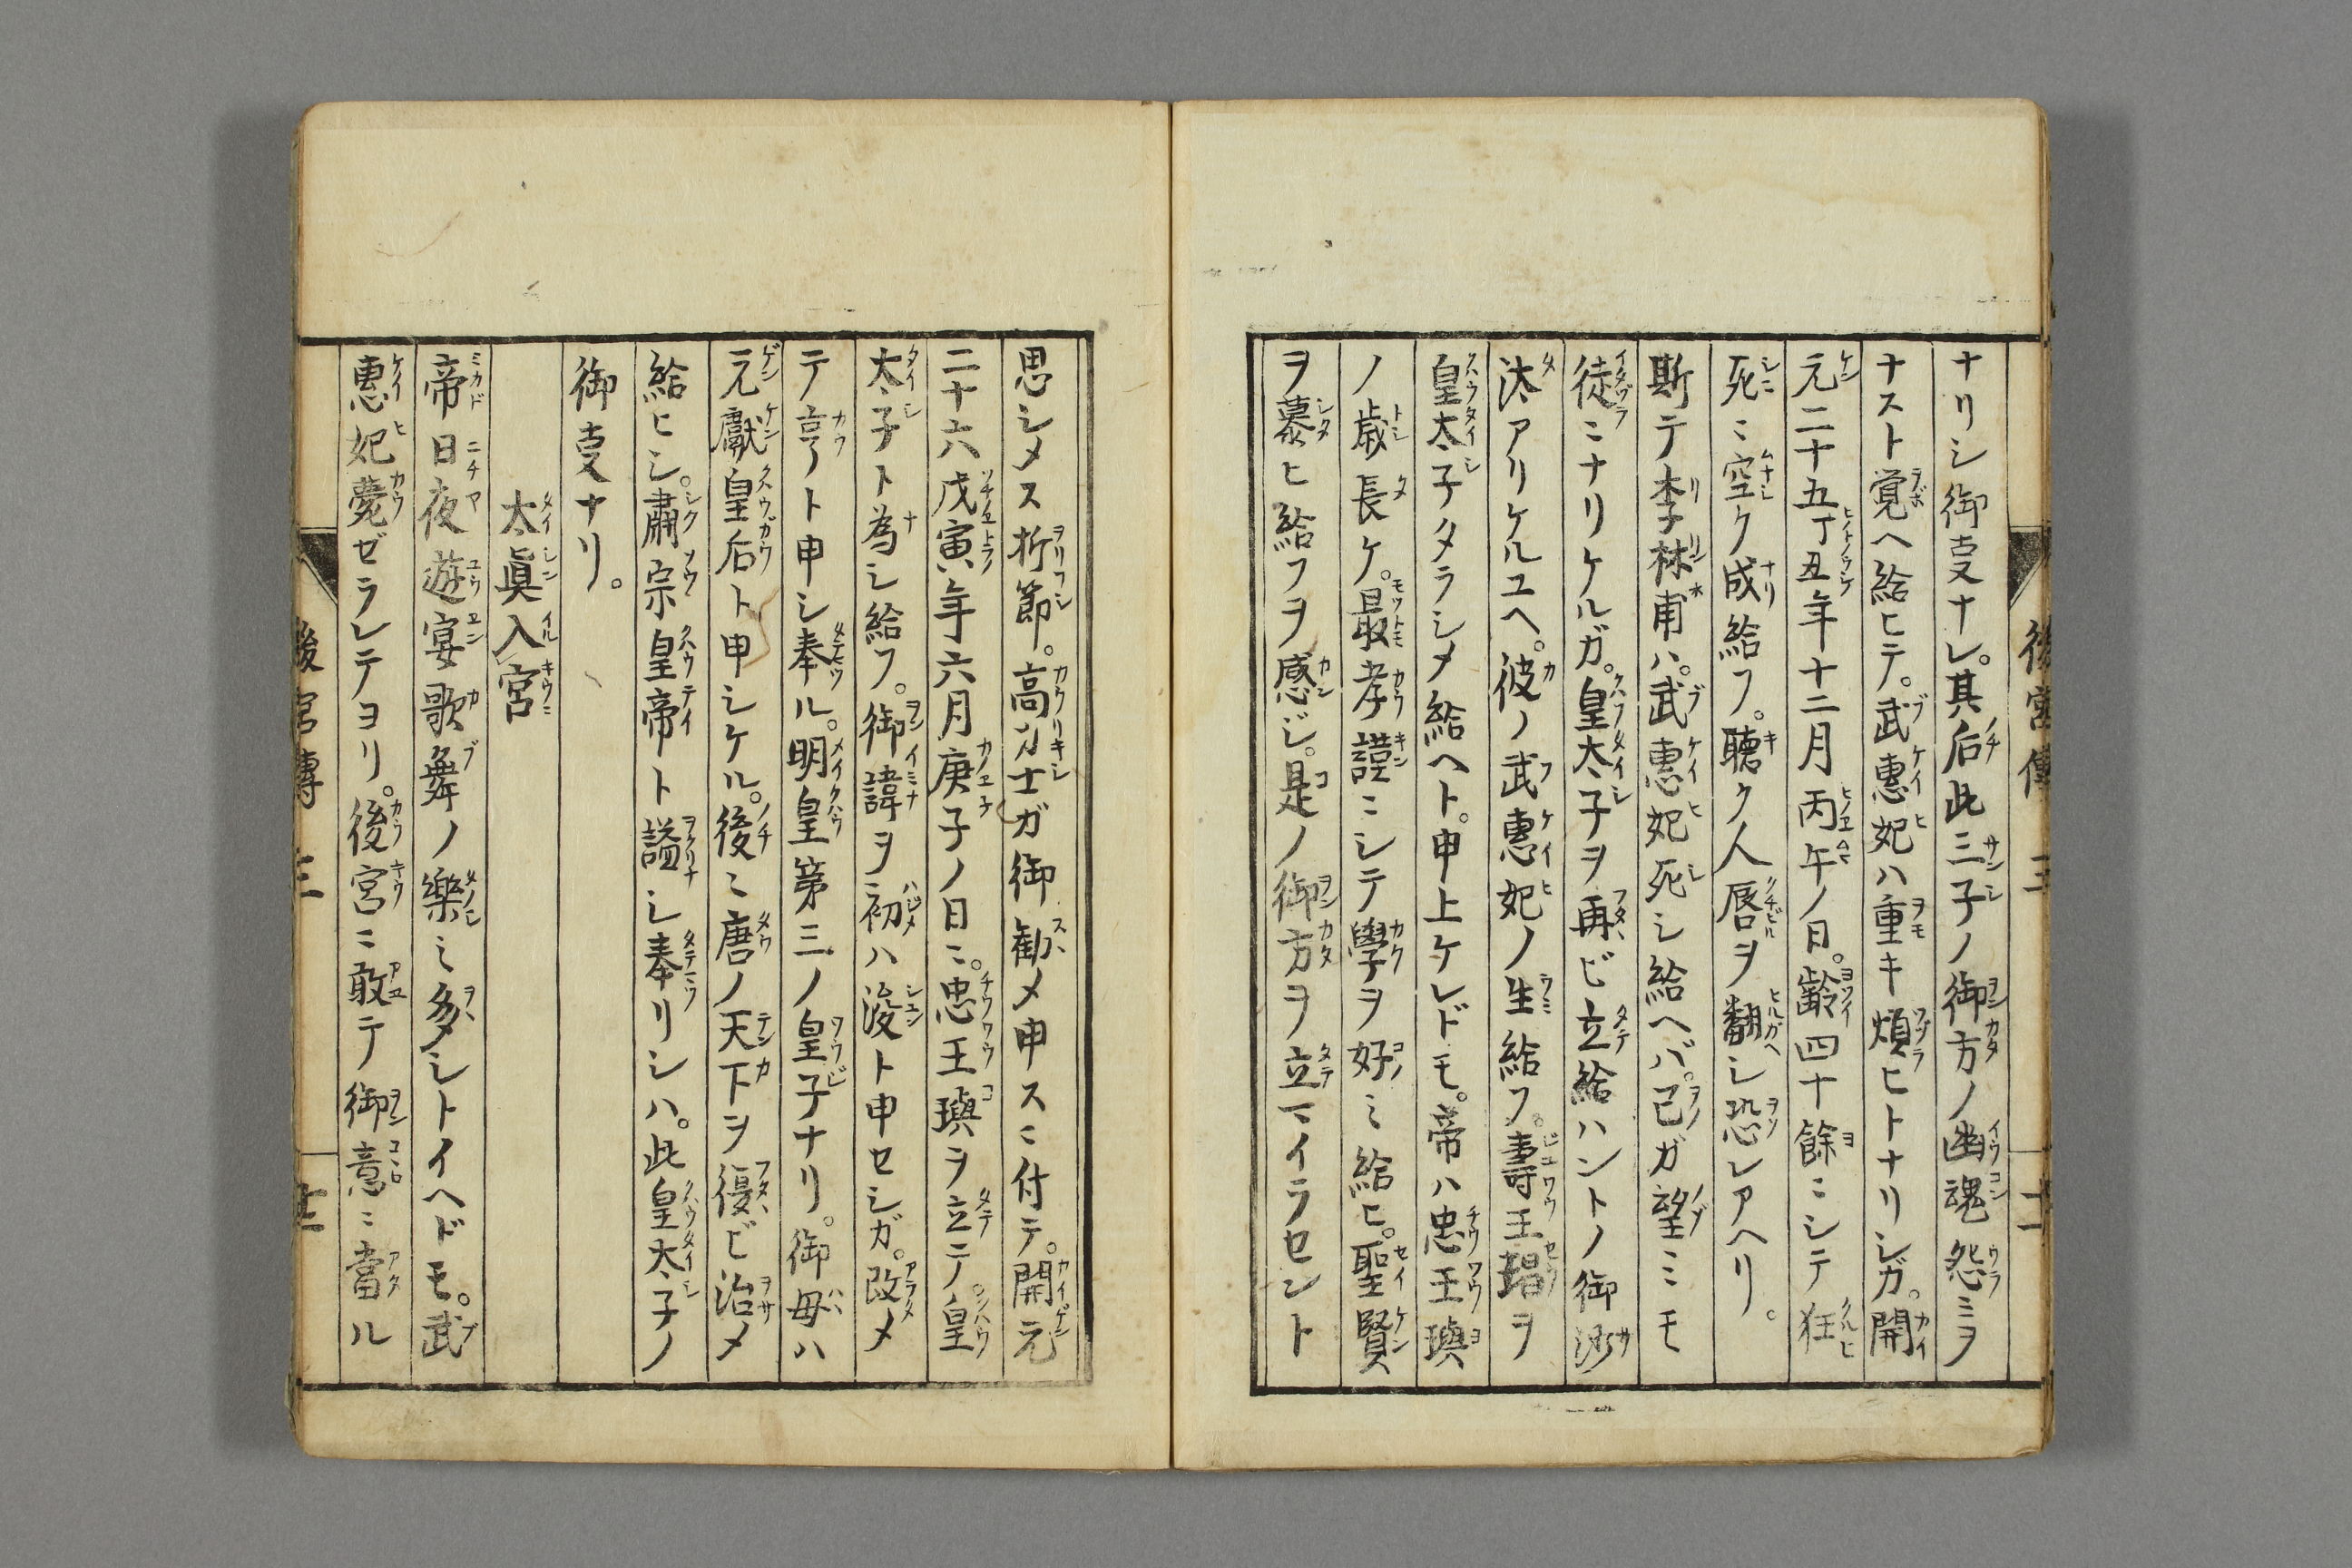 ナリシ御叓ナレ。其后此三子ノ御方ノ幽魂怨ミヲ
ナスト覚ヘ給ヒテ。武惠妃ハ重キ煩ヒトナリシガ。開
元二十五丁丑年十二月丙午ノ日。齢四十餘ニシテ狂
死ニ空ク成給フ。聴ク人唇ヲ翻シ恐レアヘリ。
斯テ李林甫ハ。武惠妃死シ給ヘバ。己ガ望ミモ
徒ニナリケルガ。皇太子ヲ再ビ立給ハントノ御沙
汰アリケルユヘ。彼ノ武惠妃ノ生給フ。壽王瑁ヲ
皇太子タラシメ給ヘト。申上ケレドモ。帝ハ忠王璵
ノ歳長ケ。最孝謹ニシテ學ヲ好ミ給ヒ。聖賢
ヲ慕ヒ給フヲ感ジ。是ノ御方ヲ立マイラセント
思シメス折節。高力士ガ御勧メ申スニ付テ。開元
二十六戊寅年六月庚子ノ日ニ。忠王璵ヲ立テ皇
太子ト為シ給フ。御諱ヲ初ハ浚ト申セシガ。改メ
テ亨ト申シ奉ル。明皇第三ノ皇子ナリ。御母ハ
元獻皇后ト申シケル。後ニ唐ノ天下ヲ復ビ治メ
給ヒシ。肅宗皇帝ト謚シ奉リシハ。此皇太子ノ
御叓ナリ。
太眞入宮
帝日夜遊宴歌舞ノ樂ミ多シトイヘドモ。武
惠妃薨ゼラレテヨリ。後宮ニ敢テ御意ニ當ル
後宮傳 三